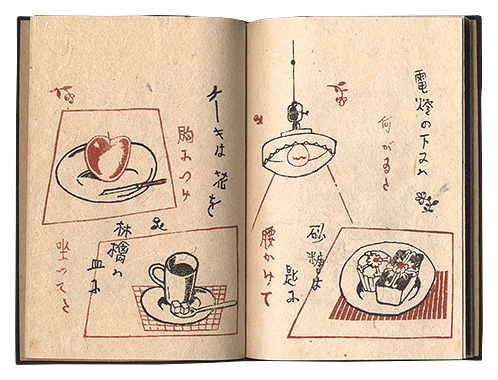 電燈の下には
何がある
砂糖は
匙に
腰かけて
ケーキは花を
胸につけ
林檎は
皿に
坐つてる